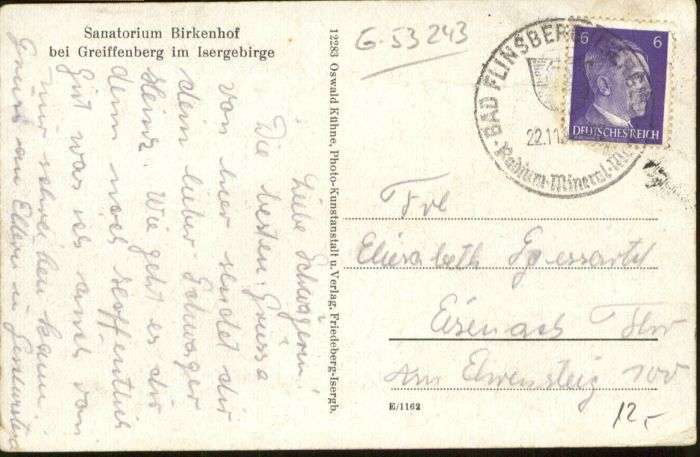 Sanatorium Birkenhof
bei Greiffenberg im Isergebirge
Liebe Schwägerin!
Die besten Grüsse
von hier sendet dir
dein lieber Schwager
Heinz. Wie geht es dir
denn noch hoffentlich
gut was ich auch von
mir schreiben kann.
Gruss an Eltern u. Geschwister
12283 Oswald Kühne, Photo-Kunstanstalt u. Verlag, Friedeberg-Isergb.
G-53243
BAD FLINSBERG
22.11
Radium-Mineral
6 6
DEUTSCHES REICH
Frl
Elisabeth
Eisenach Thür
Am Ehrensteig 100
E/1162
12,-